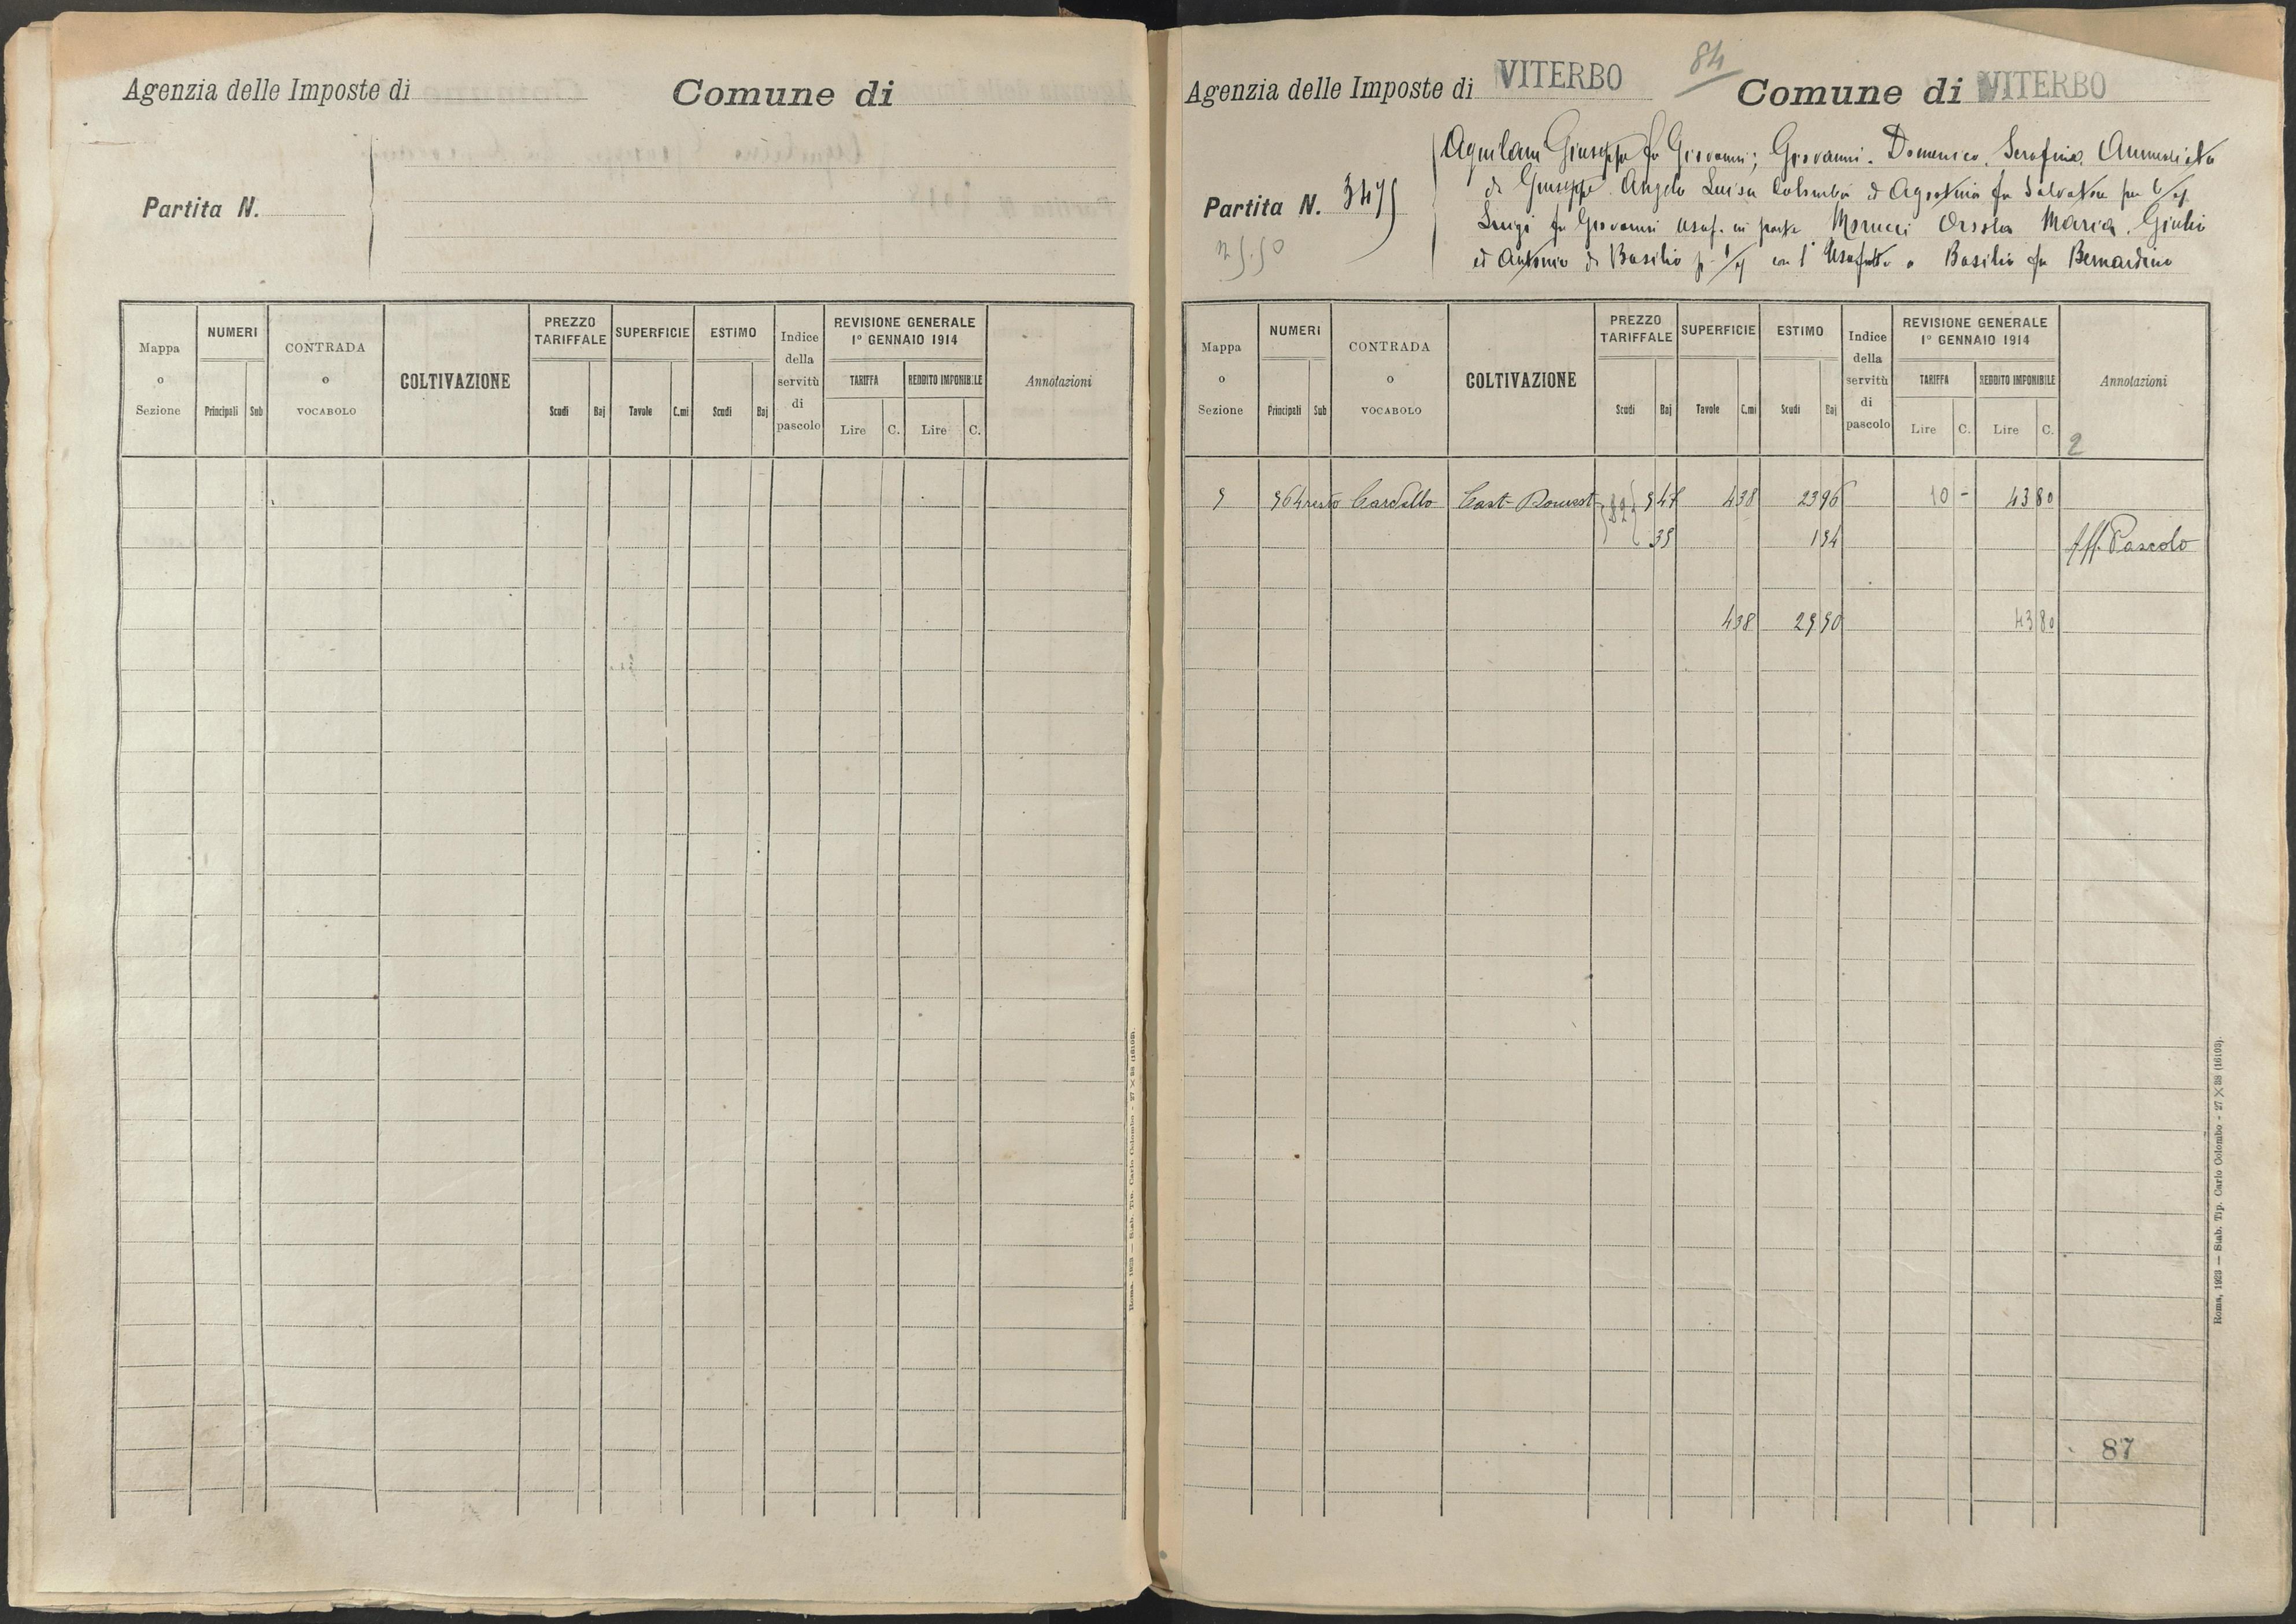 Agenzia delle Imposte di
Comune di
Partita N.
Mappa o Sezione
NUMERI
Principali
Sub
CONTRADA o VOCABOLO
COLTIVAZIONE
PREZZO TARIFFALE
Scudi
Baj
SUPERFICIE
Tavole
C.mi
ESTIMO
Scudi
Baj
Indice della servitù di pascolo
REVISIONE GENERALE
1º GENNAIO 1914
TARIFFA
REDDITO IMPONIBILE
Lire
C.
Lire
C.
Annotazioni
Roma, 1923 — Stab. Tip. Carlo Colombo - 27 × 38 (16103).
Agenzia delle Imposte di VITERBO
84
Comune di VITERBO
Partita N. 3475
Aquilani Giuseppe fu Giovanni; Giovanni. Domenico. Serafina. Annunziata
di Giuseppe. Angelo Luisa Colomba ed Agostino fu Salvatore per
Luigi fu Giovanni usuf. in parte Morucci Orsola Maria. Giulio
ed Antonio di Basilio con l'Usufrutto a Basilio fu Bernardino
Mappa o Sezione
NUMERI
Principali
Sub
CONTRADA o VOCABOLO
COLTIVAZIONE
PREZZO TARIFFALE
Scudi
Baj
SUPERFICIE
Tavole
C.mi
ESTIMO
Scudi
Baj
Indice della servitù di pascolo
REVISIONE GENERALE
1º GENNAIO 1914
TARIFFA
REDDITO IMPONIBILE
Lire
C.
Lire
C.
Annotazioni
2
5 564 resto Cardello Cast 5 47 4 38 23 96 10 - 43 80
35 1 54 Aff. Pascolo
4 38 25 50 43 80
87
Roma, 1923 — Stab. Tip. Carlo Colombo - 27 × 38 (16103).